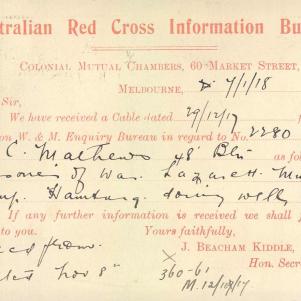 tralian Red Cross Information Bu
Colonial Mutual Chambers, 60 Market Street,
Melbourne, 7/1/18
Sir,
We have received a Cable dated 29/12/17
on W. & M. Enquiry Bureau in regard to No. 2280
C. Mathews 48 Bln as fo
soner of War. Lazarett. Mu
Hamburg. doing well
If any further information is received we shall
t to you. Yours faithfully,
J. Beacham Kiddle,
Hon. Secre
Nov 8"
360-61
M. 12/12/17